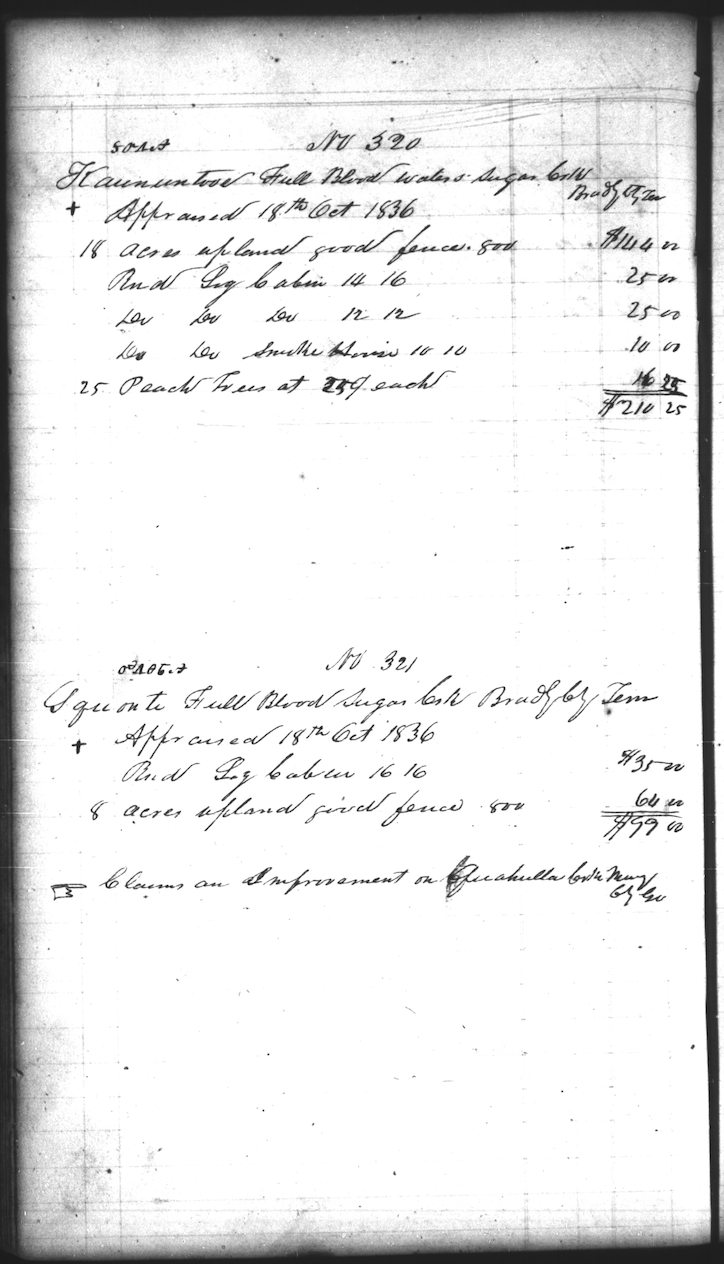 No 320
Full Blood waters Sugar Crk
Bradly Cty Ten
+ Appraised 18th Oct 1836
18 acres upland good fence. 800 $144 00
Rnd Log Cabin 14 16 25 00
Do Do Do 12 12 25 00
Do Do Smoke House 10 10 10 00
25 Peach Trees at each 16 25
$210 25
No 321
Squonte Full Blood Sugar Crk Bradly Cty Tenn
+ Appraised 18th Oct 1836
Rnd Log Cabin 16 16 $35 00
8 acres upland good fence 800 64 00
$99 00
Claims an Improvement on Quahulla Crk Mury
Cty Geo